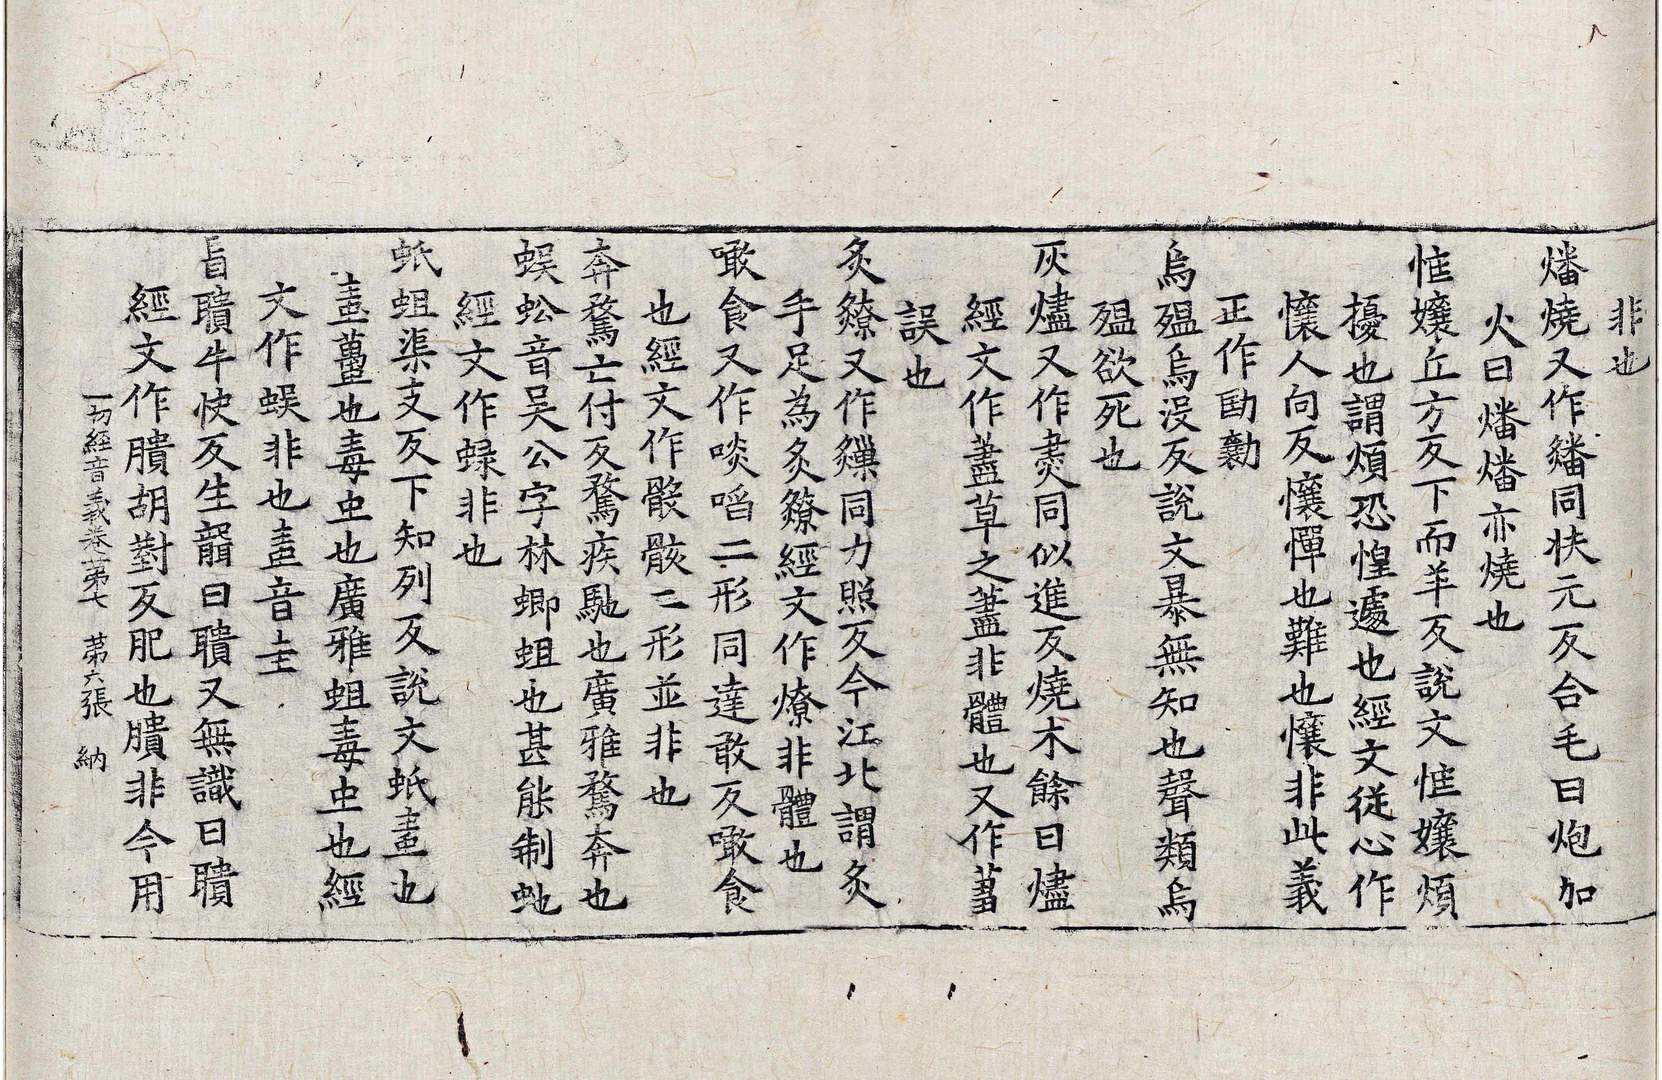 非也
燔燒又作䊩同扶元反合毛曰炮加
火曰燔燔亦燒也
恇孃丘方反下而羊反說文恇孃煩
擾也謂煩恐惶遽也經文從心作
懹人向反懹憚也難也懹非此義
正作勖勷
烏殟烏沒反說文暴無知也聲類烏
殟欲死也
灰燼又作㶳同似進反燒木餘曰燼
經文作藎草之藎非體也又作
誤也
炙䉼又作䊫同力照反今江北謂炙
手足為炙䉼經文作燎非體也
噉食又作啖啗二形同達敢反噉食
也經文作骰骸二形並非也
奔騖亡付反騖疾馳也廣雅騖奔也
蜈蚣音吴公字林蝍蛆也甚能制虵
經文作蝝非也
蚔蛆渠支反下知列反說文蚔畫也
畫蠆也毒虫也廣雅蛆毒虫也經
文作蜈非也畫音圭
盲聵牛快反生聾曰聵又無識曰聵
經文作膭胡對反肥也膭非今用
一切經音義卷第七 第六張 納